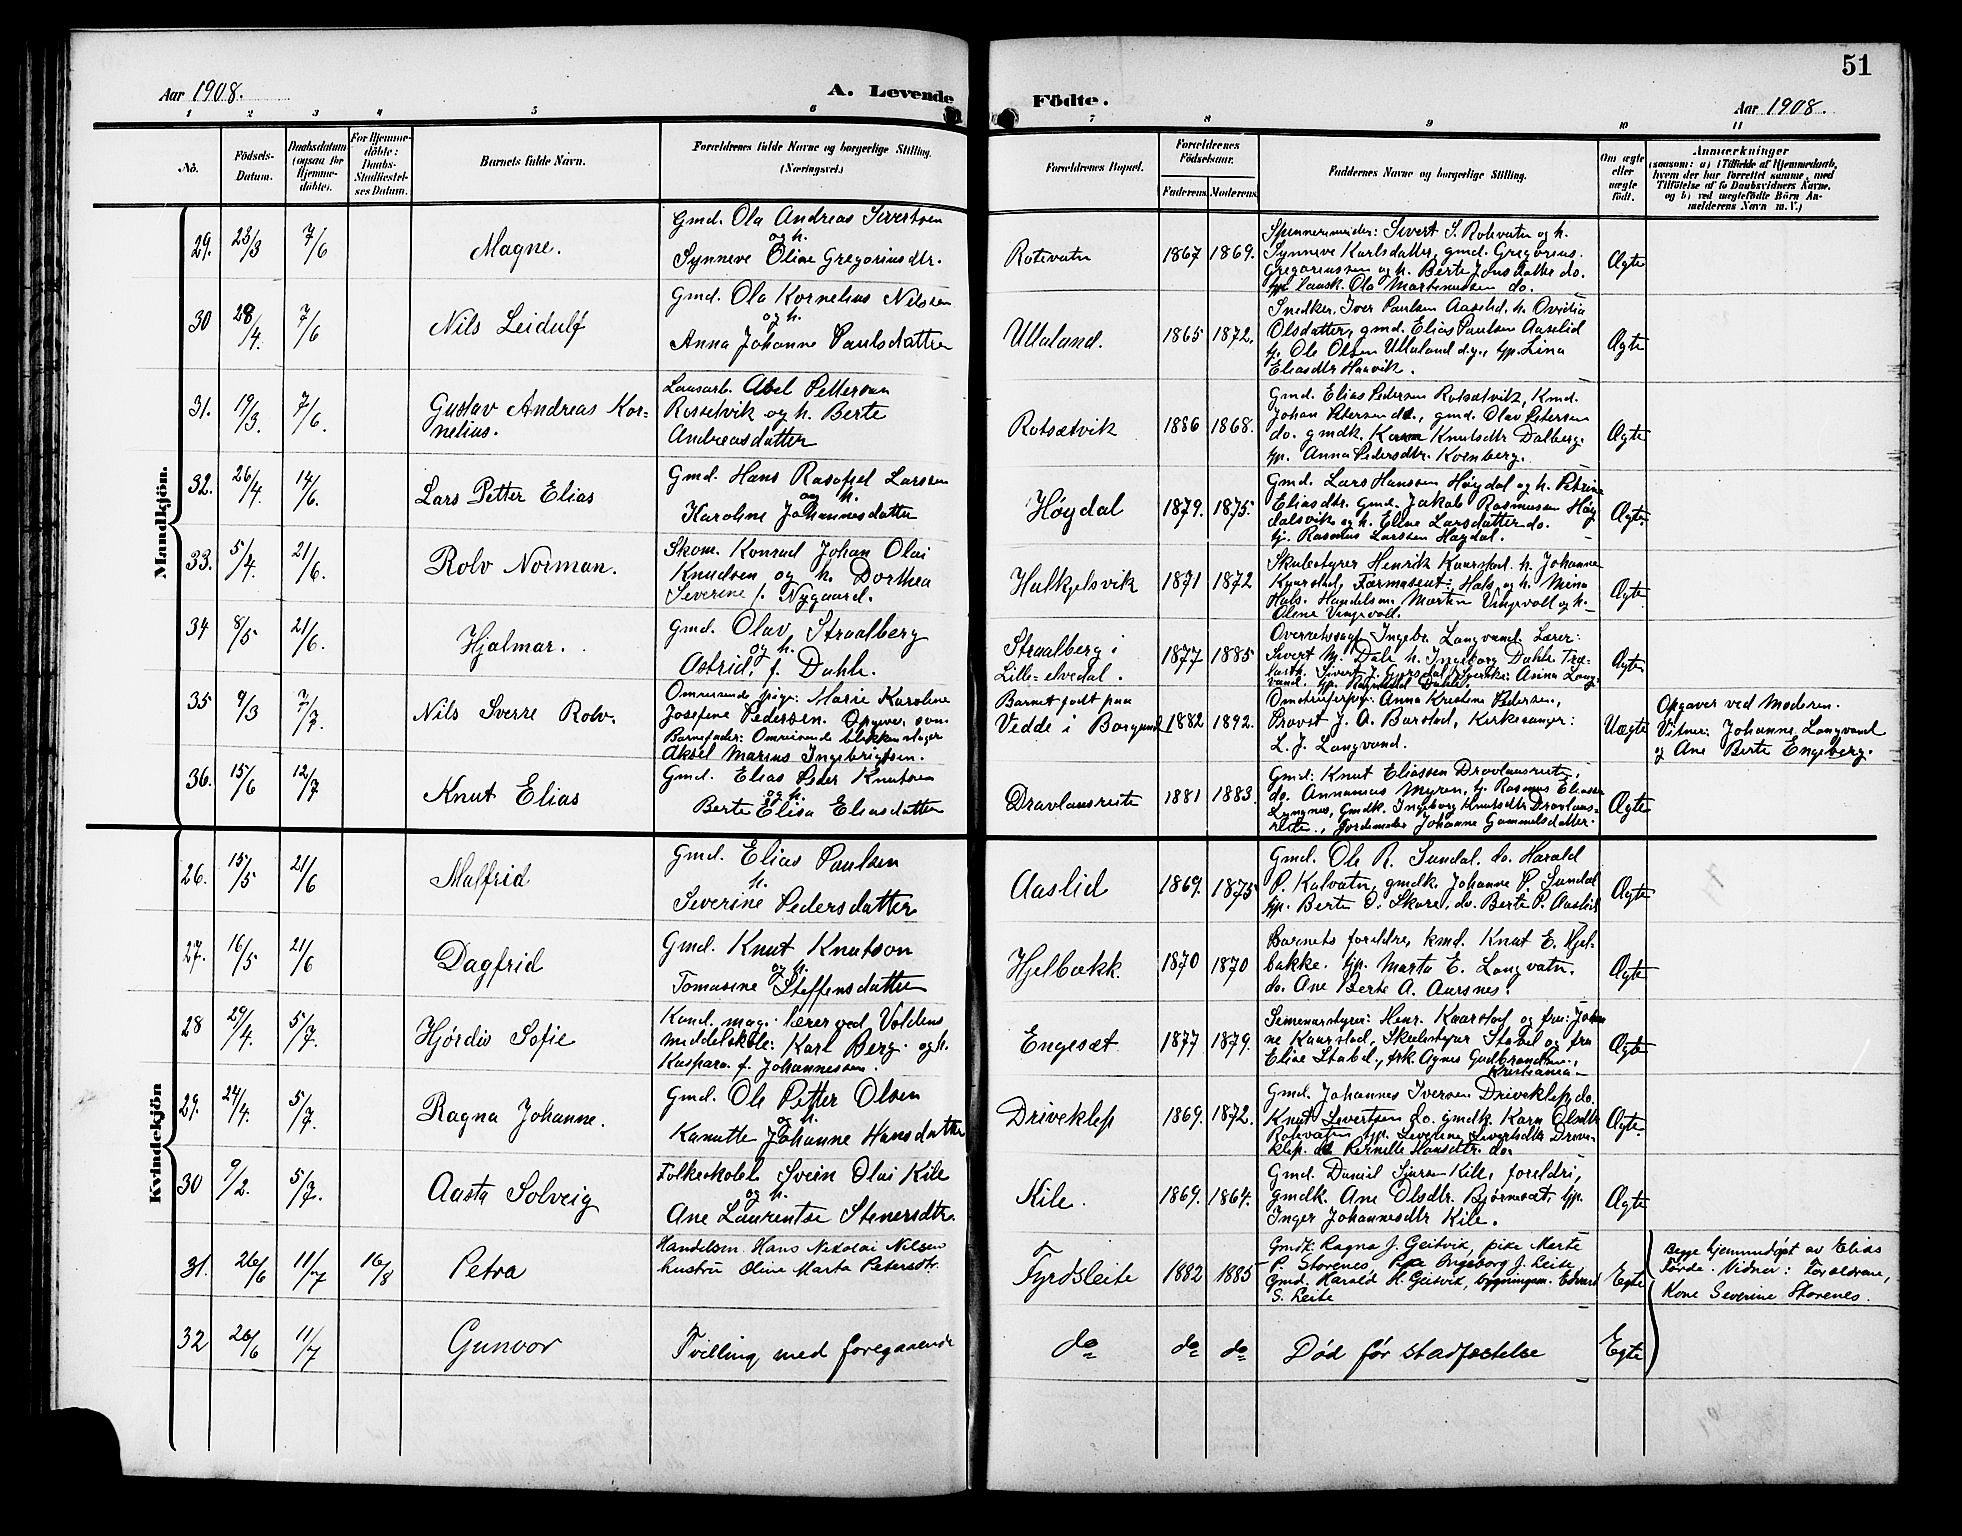 51
Aar 1908.
A. Levende
Födte.
Aar 1908.
1 2 3 4 5 6 7 8 9 10 11
No.
Födsels-
Datum.
Daabsdatum
(ogsaa for
Hjemme-
döbte).
For Hjemme-
döbte:
Daabs-
Stadfæstel-
ses Datum.
Barnets fulde Navn.
Forældrenes fulde Navne og borgerlige Stilling.
(Næringsvei.)
Forældrenes Bopæl.
Forældrenes
Födselsaar.
Faderens Moderens
Faddernes Navne og borgerlige Stilling.
Om ægte
eller
uægte
födt.
Anmærkninger
(saasom: a) i Tilfælde af Hjemmedaab,
hvem der har forrettet samme, med
Tilföielse af to Daabsvidners Navne,
og b) ved uægtefödte Börn An-
melderens Navn m. V.)
Mandkjön.
29. 23/3 7/6 Magne.
Gmd. Ola Andreas Sivertsen
og h.
Synneve Oline Gregoriusdtr.
Rotevatn 1867 1869.
Spinnerimeider: Sivert S. Rotevatn og h.
Synneve Karlsdatter, gmd. Gregorius
Gregoriussen og h. Berte Jonsdatter do.
Ola Martinussen do.
Ægte
30 28/4. 7/6 Nils Leidulf
Gmd. Ola Kornelius Nilssen
og h.
Anna Johanne Paulsdatter
Ullaland. 1865 1872.
Snedker Iver Paulsen Aaselid, h. Ovidia
Olsdatter, gmd. Elias Paulsen Aaselid
Ole Olsen Ullaland d.y., tjp. Lina
Eliasdtr Haavik.
Ægte
31. 19/3. 7/6. Gustav Andreas Kor-
nelius.
Lausarb. Abel Pettersen
Rossetvik og h. Berte
Andreasdatter
Rotsætvik 1886 1868.
Gmd. Elias Pedersen Rotsætvik, Kmd.
Johan Petersen do., gmd. Olav Petersen
do. gmdk. Karen Knutsdtr Dalberg.
tjp. Anna Pedersdtr. Kornberg.
Ægte
32. 26/4. 14/6. Lars Petter Elias
Gmd. Hans Rasofel Larssen
og h.
Karoline Johannesdatter
Høydal 1879. 1875.
Gmd. Lars Hanssen Høydal og h. Petrine
Eliasdtr. Gmd. Jakob Rasmussen Høy
dalsvik og h. Eline Larsdatter do.
tj. Rasmus Larssen Høydal.
Ægte
33. 5/4. 21/6. Rolv Norman.
Skom. Konrad Johan Olai
Knudsen og h. Dorthea
Severine f. Nygaard.
Halkjelsvik 1871 1872
Skulestyrer Henrik Kaarstad h. Johanne
Kaarstad, Farmaseut: Hals, og h. Mina
Hals. Handelsm. Martin Vingvoll og h.
Olena Vingvoll.
Ægte
34 8/5 21/6. Hjalmar.
Gmd. Olav Straalberg
og h.
Astrid, f. Dahle.
Straalberg i
Lille-elvedal. 1877 1885
Overretssagf. Ingebr. Langvand. Lærer:
Sivert M. Dale h. Ingeborg Dahle. Tra-
Anna Lang-
vand.
Ægte
35 9/3 7/7. Nils Sverre Rolv.
Omreisende pige: Marie Karoline
Josefine Pedersen. Opgiver som
Barnefader: Omreisende blikkenslager
Aksel Marius Ingebrigtsen.
Barnet født paa
Vedde i Borgund 1882 1892.
Omstreiferkvg. Anna Kristina Pedersen,
Provst J. A. Barstad, Kirkesanger:
L. J. Langvand.
Uægte
Opgaver ved Moderen.
Vitner: Johanne Langvand
og Ane Berte Engeberg.
36. 15/6 12/7 Knut Elias
Gmd. Elias Peder Knutsen
og h.
Berte Elisa Eliasdatter
Dravlausreite 1881 1883.
Gmd. Knut Eliassen Dravlausreite,
do. Annanias Myren, tj. Rasmus Eliassen
Lyngnes, Gmdk. Ingeborg Knutsdtr Dravlaus-
reite., Jordemoder Johanne Gammelsdatter.
Ægte
Kvindekjön
26. 15/5 21/6 Malfrid
Gmd. Elias Paulsen
h.
Severine Pedersdatter
Aaslid 1869. 1875
Gmd. Ole R. Sundal. do. Harald
P. Kalvatn, gmdk. Johanne P. Sundal
tjp. Berte O. Skare, do. Berte P. Aaslid
Ægte
27. 16/5 21/6 Dagfrid
Gmd. Knut Knutson
og h.
Tomasine Steffensdatter
Hjelbækk. 1870 1870
Barnets foreldre, kmd. Knut E. Hjel-
bakke. tjp. Marta E. Langvatn.
do. Ane Berte A. Aarsnes.
Ægte
28 29/4. 5/7. Hjørdis Sofie
Kand. mag. lærer ved Voldens
middelskole: Karl Berg. og h.
Kaspara f. Johannessen.
Engesæt 1877 1879.
Seminarstyrer: Henr. Kaarstad og frue: Johan
ne Kaarstad, Skulestyrer Stabel og fru
Elise Stabel, frk. Agnes Gudbrandsen.,
Kristiania
Ægte
29. 24/4. 5/7. Ragna Johanne.
Gmd. Ole Petter Olsen
og h.
Kanutte Johanne Hansdatter
Driveklep 1869. 1872.
Gmd. Johannes Iversen Driveklep, do.
Knut Sivertsen do. gmdk. Karn Olsdtr
Rotevatn tjp. Severine Sivertsdtr Drive-
klep. do Pernille Hansdtr. do.
Ægte.
30 9/2. 5/7. Aasta Solveig
Folkeskolel. Svein Olai Kile
og h.
Ane Laurentse Stenersdtr.
Kile. 1869. 1864.
Gmd. Daniel Sjursen Kile, foreldri,
gmdk. Ane Olsdtr. Bjørneset, tjp.
Inger Johannesdtr Kile.
Ægte
31. 26/6 11/7 16/8 Petra
Handelsm. Hans Nikolai Nilsen
hustru Oline Marta Petersdtr.
Fyrdsleite 1882 1885
Gmdk. Ragna J. Geitvik, pike Marte
P. Storenes, Pike Ingeborg J. Leite
Gmd. Harald H. Geitvik, bygningsm. Edvard
S. Leite
Egte
Begge hjemmedøpt av Elias
Førde. Vidner: Forældrene,
Kone Severine Storenes.
32 26/6 11/7 Gunvor
Tvilling med foregaaende
do do do Død før stadfæstelse
Egte